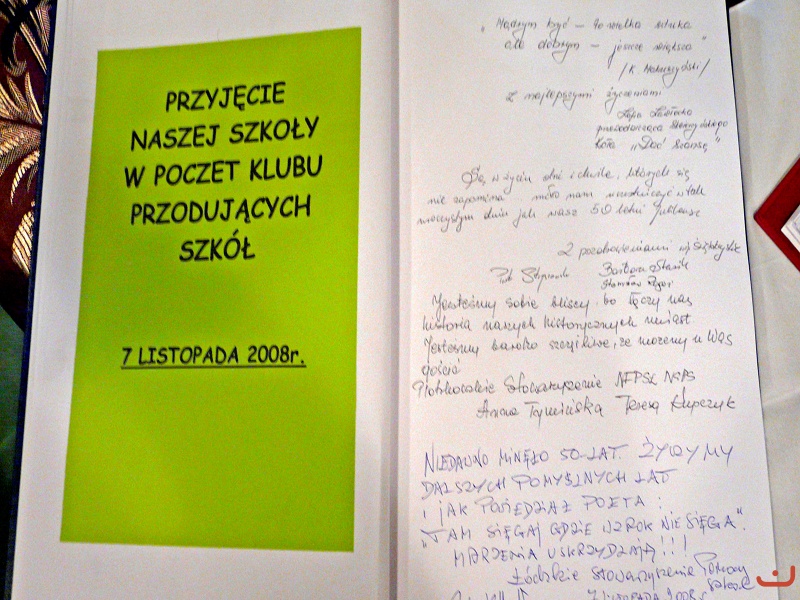 PRZYJĘCIE
NASZEJ SZKOŁY
W POCZET KLUBU
PRZODUJĄCYCH
SZKÓŁ
7 LISTOPADA 2008r.
"Mądrym być – to wielka sztuka
ale dobrym – jeszcze większa"
Z najlepszymi życzeniami
przewodnicząca
Koła "Dać Szansę"
Są w życiu dni i chwile, których się
nie zapomina – miło nam uczestniczyć w tak
uroczystym dniu jak wasz 50 letni Jubileusz
Z pozdrowieniami
Piotr Barbara
Stanisław
Jesteśmy sobie bliscy bo łączy nas
historia naszych historycznych miast.
Jesteśmy bardzo szczęśliwe, że możemy u Was
gościć
Piotrkowskie Stowarzyszenie
Anna Tymińska Teresa Kupczyk
NIEDAWNO MINĘŁO 50-LAT. ŻYCZYMY
DALSZYCH POMYŚLNYCH LAT
I JAK POWIEDZIAŁ POETA:
"TAM SIĘGAJ GDZIE WZROK NIE SIĘGA".
MARZENIA USKRZYDLAJĄ!!!
Łódzkie Stowarzyszenie Pomocy
Szkole
7 LISTOPADA 2008r